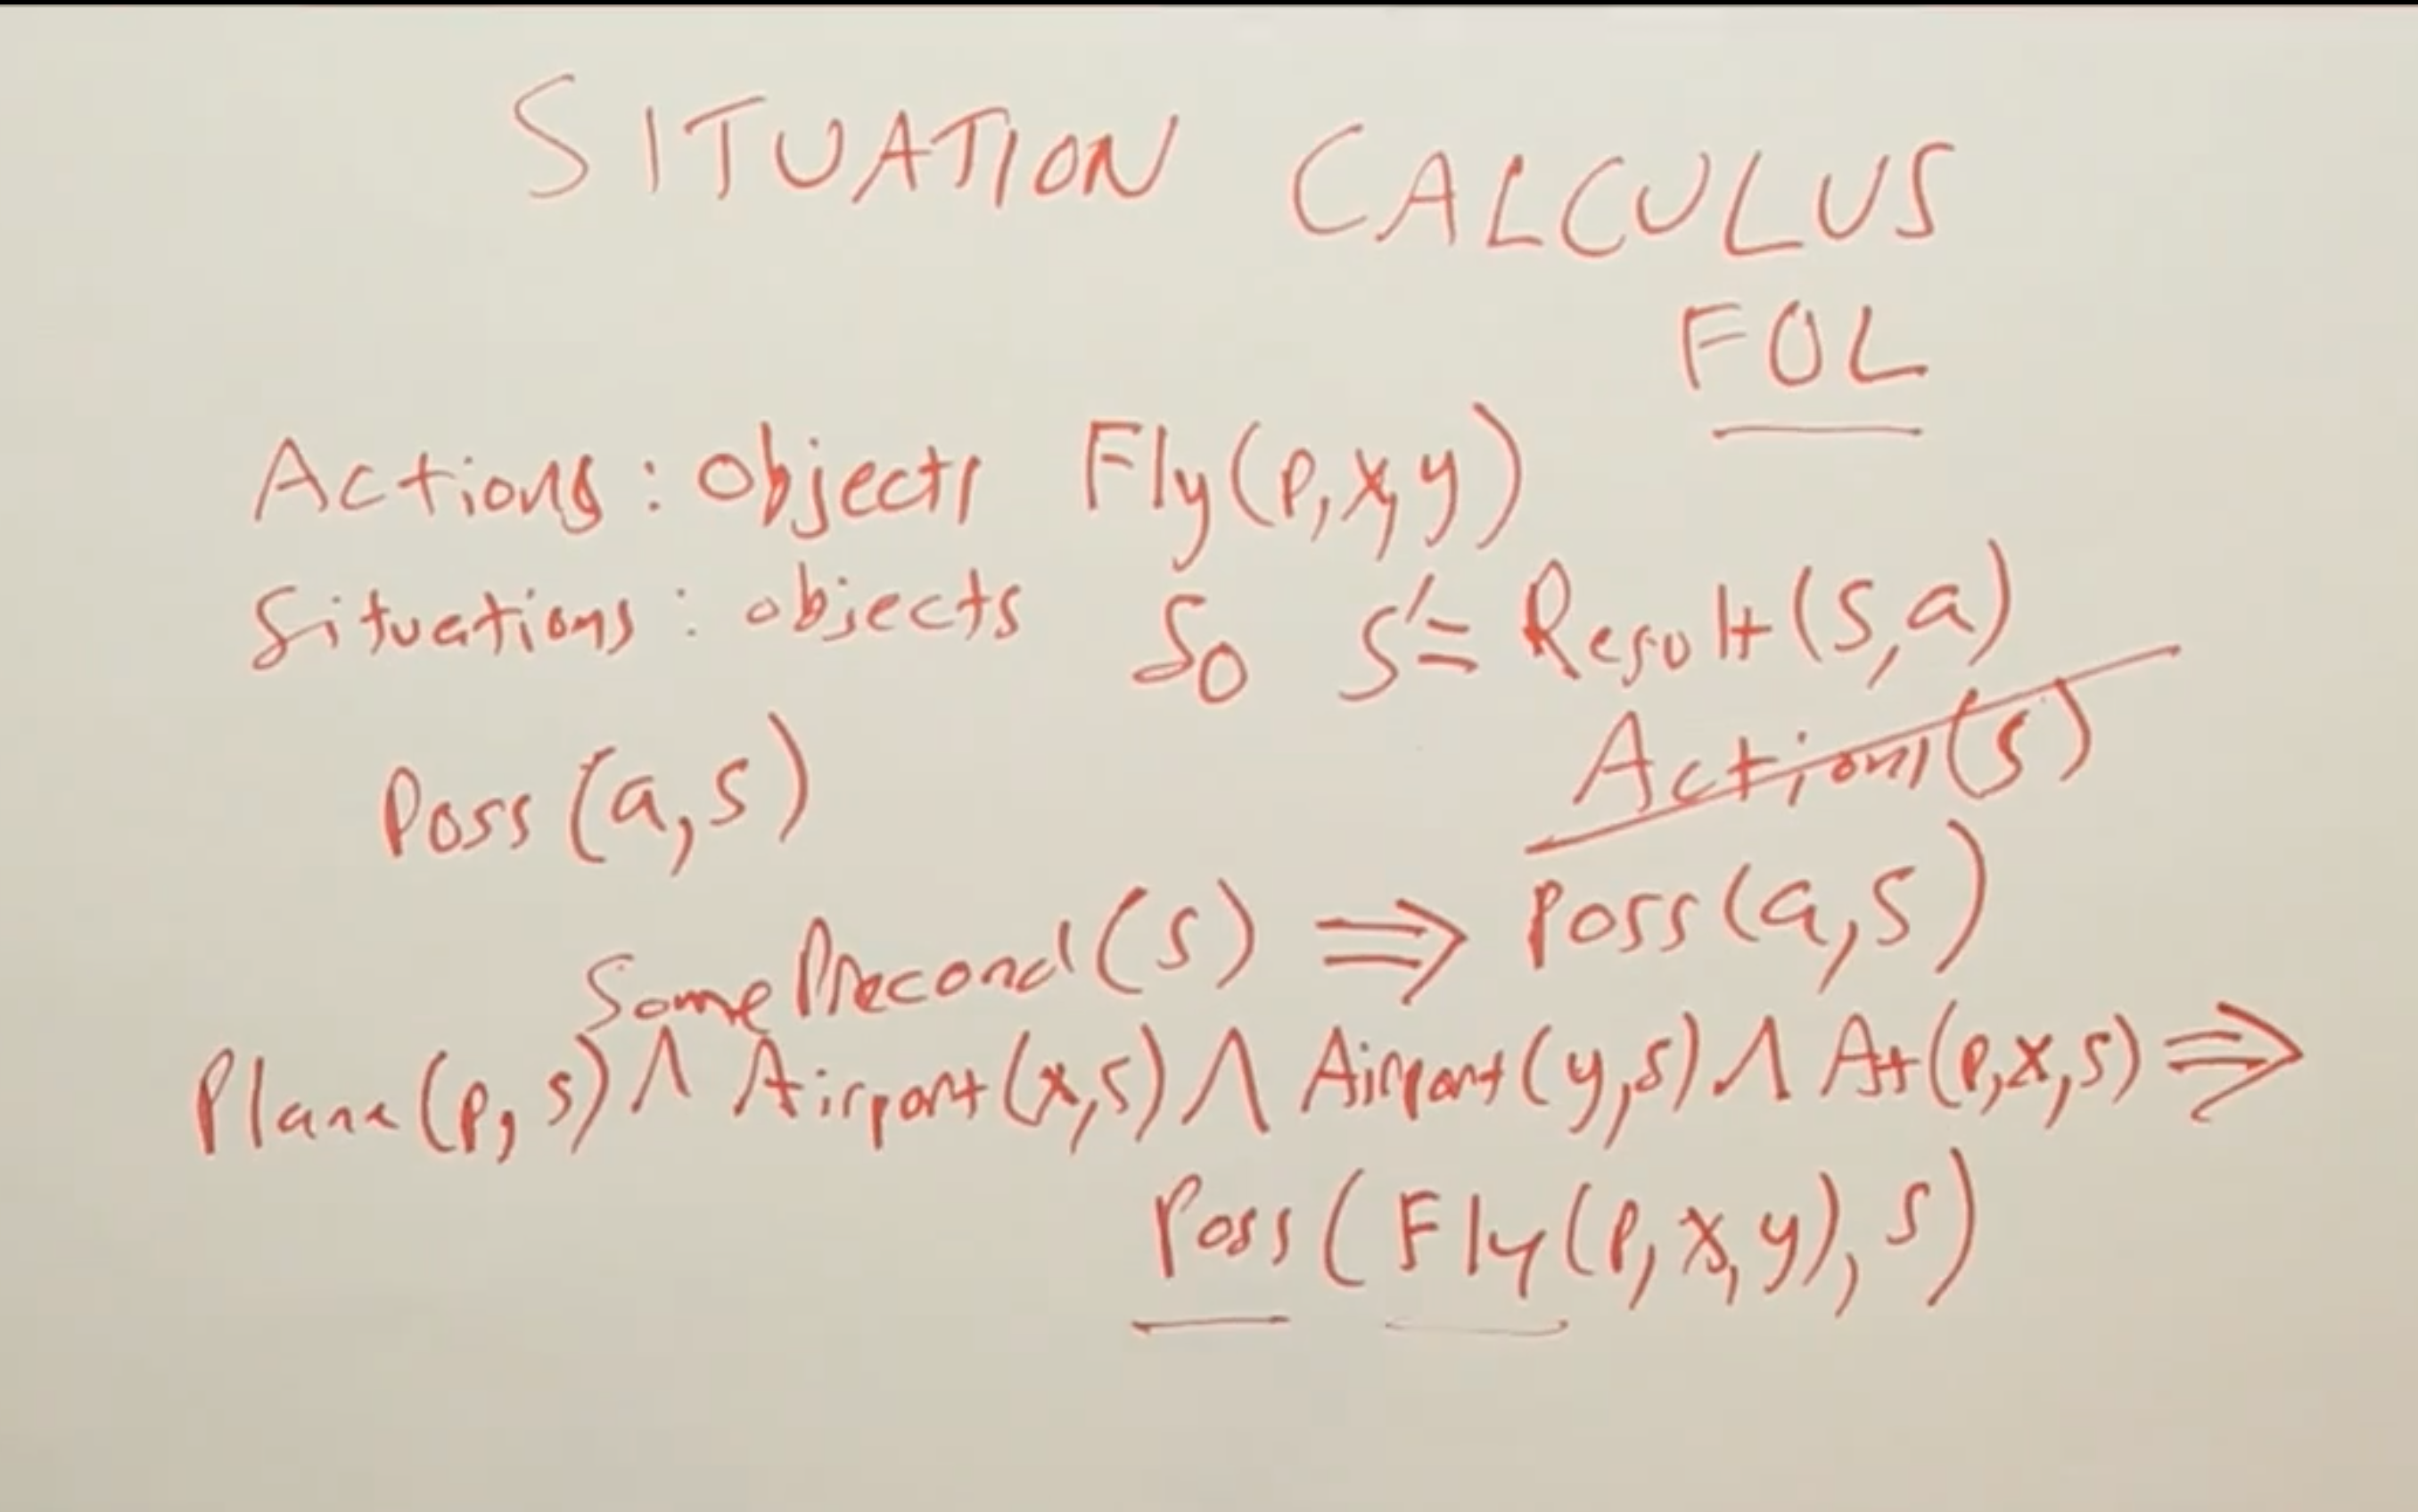 SITUATION CALCULUS
FOL
Actions: objects Fly(p,x,y)
Situations: objects S0 S'= Result(s,a)
Actions(s)
Poss(a,s)
SomePrecond(s) ⇒ Poss(a,s)
Plane(p,s) ∧ Airport(x,s) ∧ Airport(y,s) ∧ At(p,x,s) ⇒
Poss(Fly(p,x,y),s)